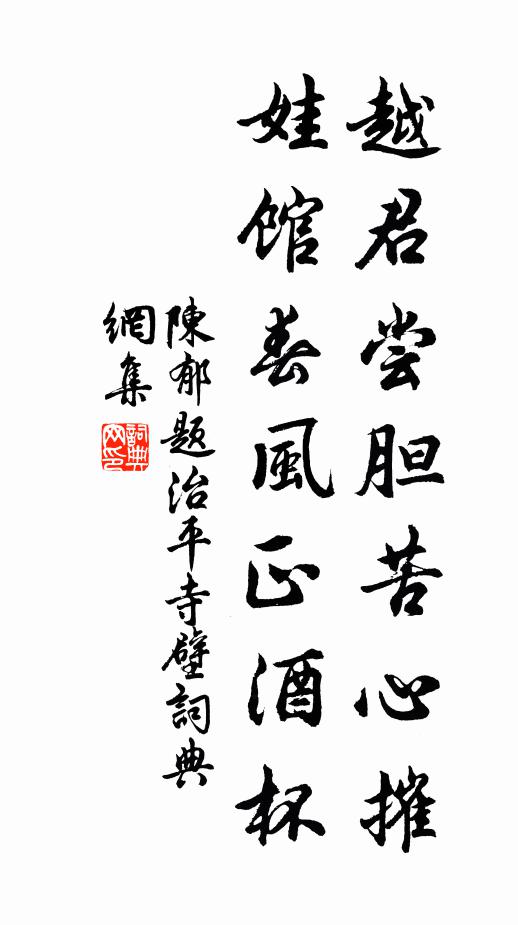 越君尝胆苦心摧
娃馆春風正酒杯
陳郁题治平寺壁詞典
網集
詞典網印